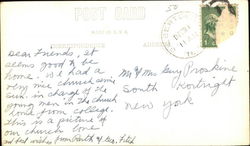 POST CARD
50
CORRESPONDENCE
ADDRESS
Dear Friends, It
seems good to be
home. We had a
very nice church service
in charge of the
young men in the church
home from college.
This is a picture of
our church love
and best wishes from Ruth &
Mr & Mrs Guy Proskine
South Kortright
New York